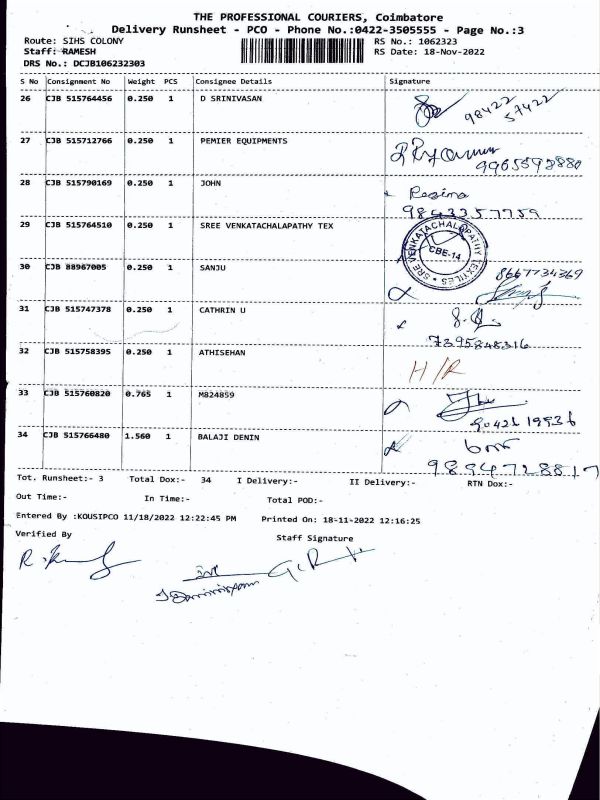 THE PROFESSIONAL COURIERS, Coimbatore
Delivery Runsheet - PCO - Phone No.:0422-3505555 - Page No.:3
Route: SIHS COLONY RS No.: 1062323
Staff: RAMESH RS Date: 18-Nov-2022
DRS No.: DCJB106232303
S No Consignment No Weight PCS Consignee Details Signature
26 CJB 515764456 0.250 1 D SRINIVASAN
98422
57422
27 CJB 515712766 0.250 1 PEMIER EQUIPMENTS
9965593880
28 CJB 515790169 0.250 1 JOHN
Regina
9843357759
29 CJB 515764510 0.250 1 SREE VENKATACHALAPATHY TEX
SREE VENKATACHALAPATHY TEXTILES
CBE-14.
30 CJB 88967005 0.250 1 SANJU
8667734369
31 CJB 515747378 0.250 1 CATHRIN U
7395848316
32 CJB 515758395 0.250 1 ATHISEHAN
H/R
33 CJB 515760820 0.765 1 M824859
90421 19936
34 CJB 515766480 1.560 1 BALAJI DENIN
9894728817
Tot. Runsheet:- 3 Total Dox:- 34 I Delivery:- II Delivery:- RTN Dox:-
Out Time:- In Time:- Total POD:-
Entered By :KOUSIPCO 11/18/2022 12:22:45 PM Printed On: 18-11-2022 12:16:25
Verified By Staff Signature